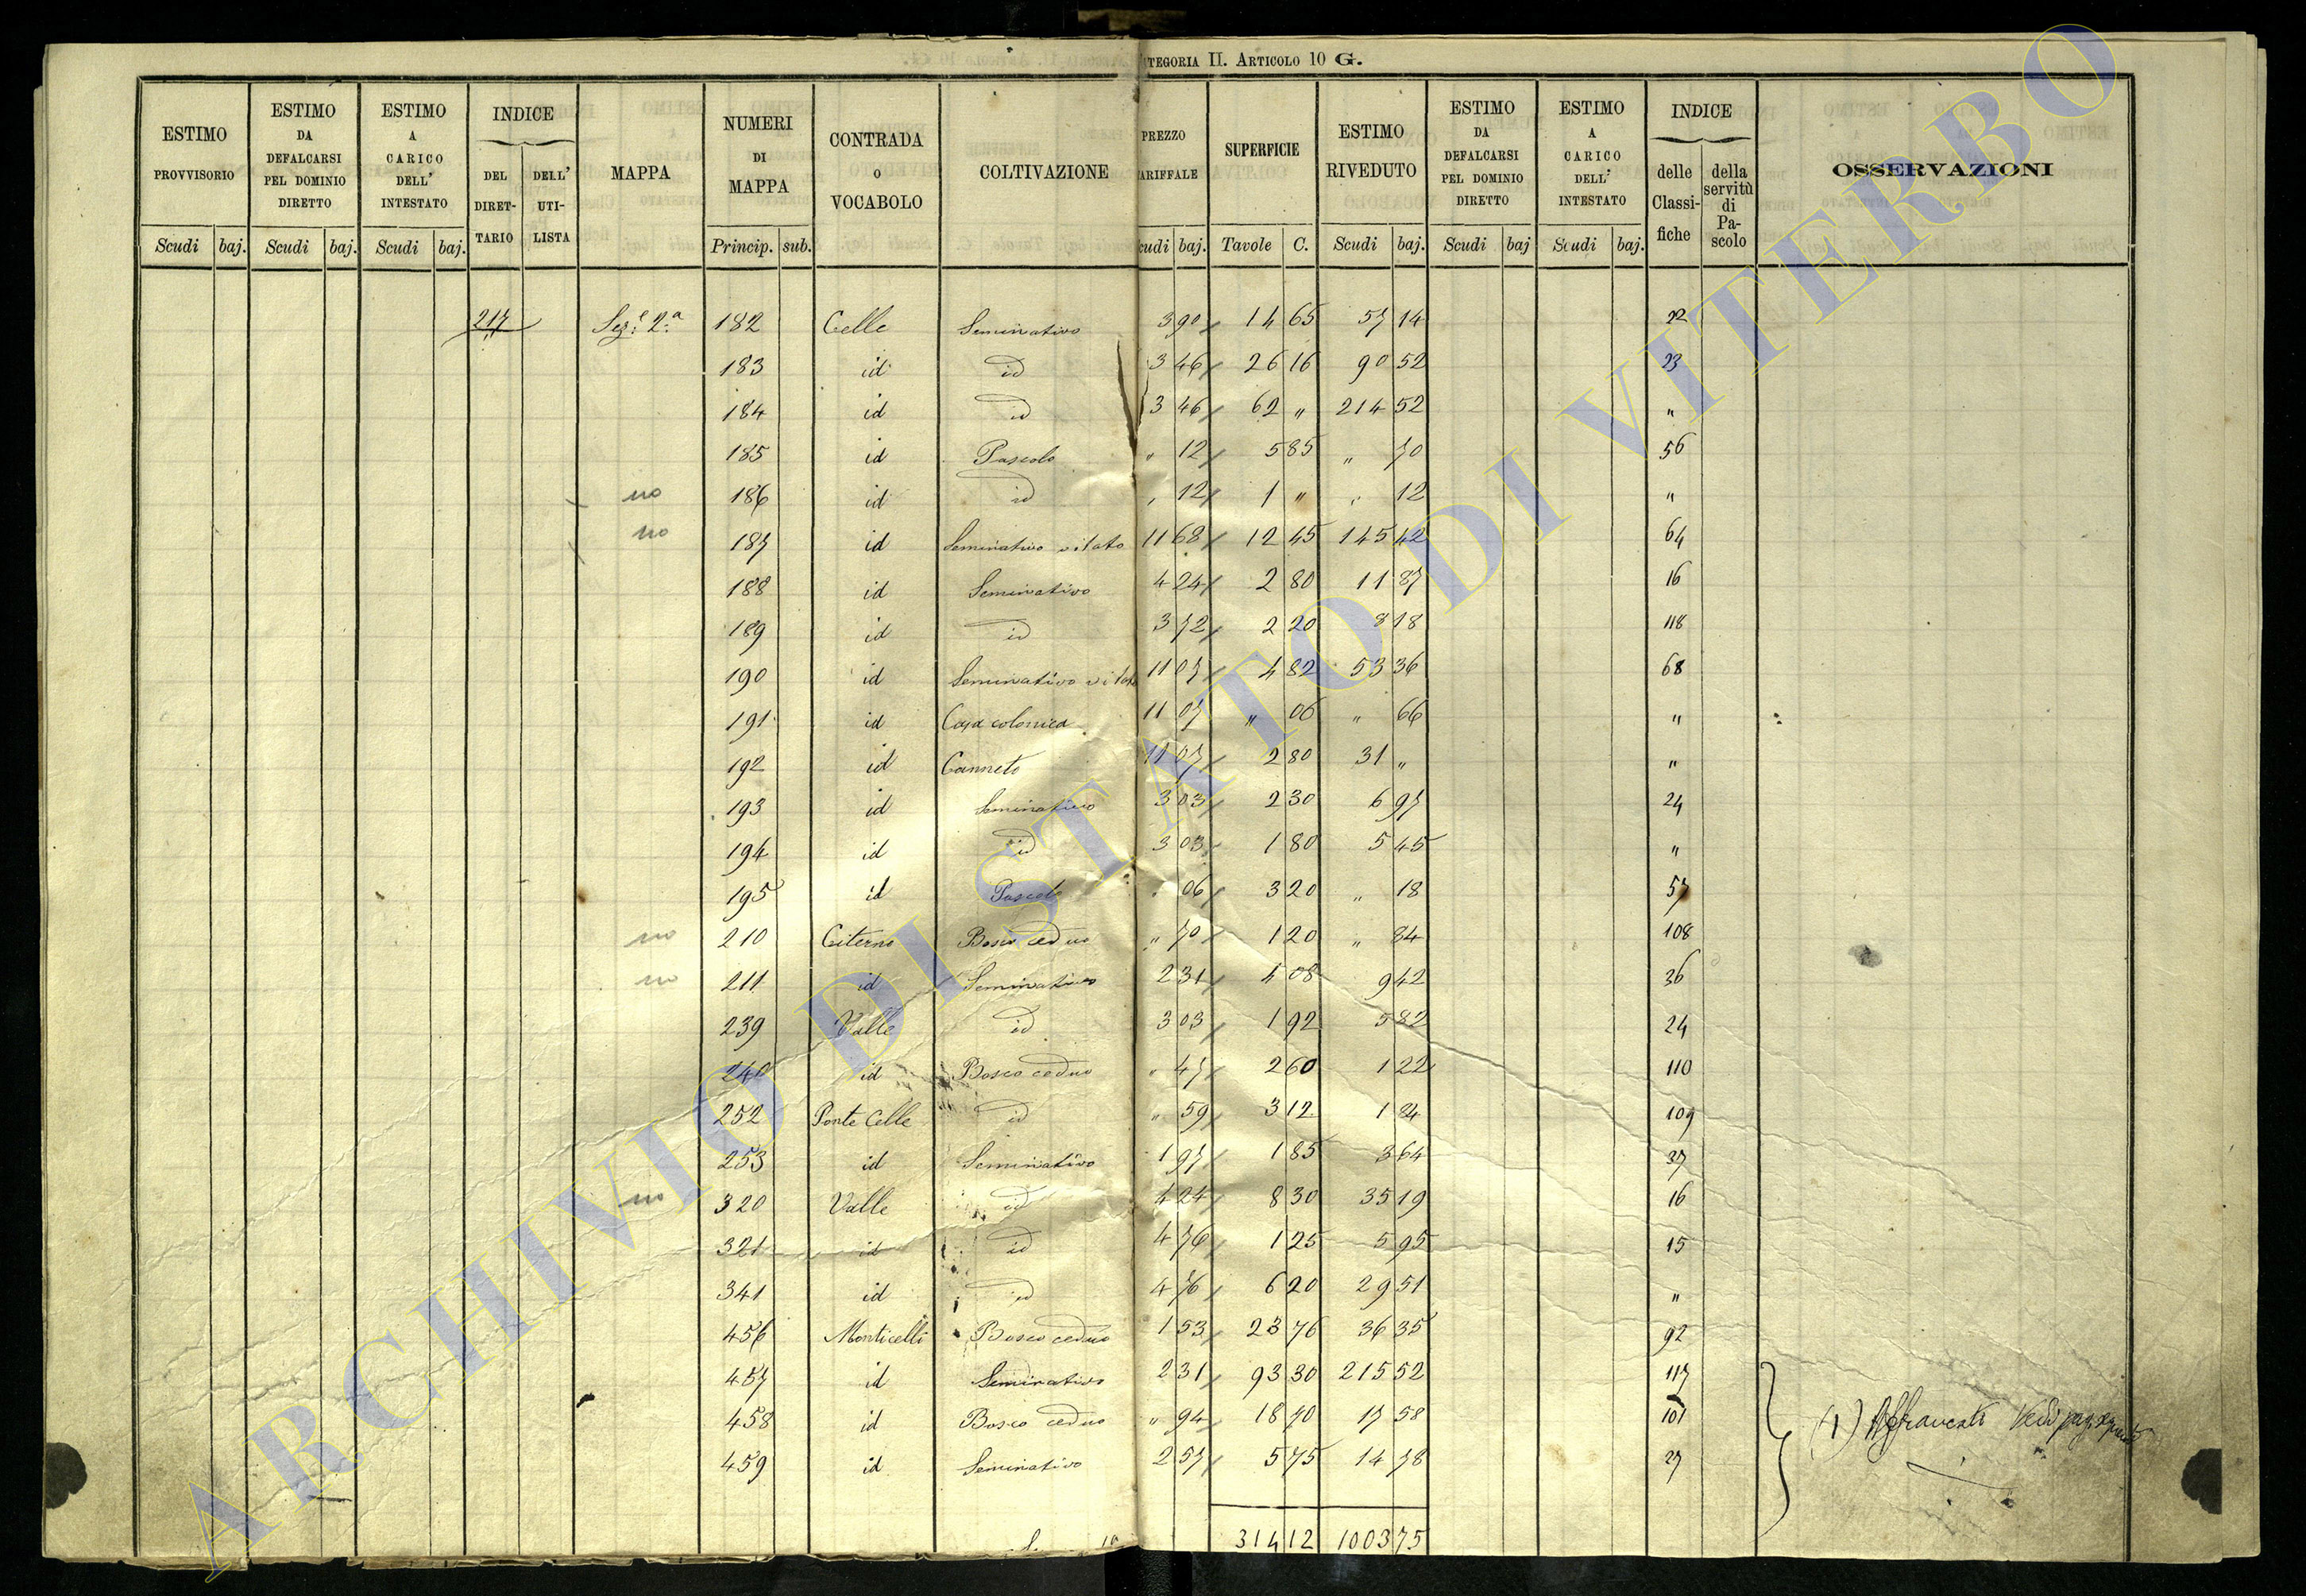 CATEGORIA II. ARTICOLO 10 G.
ESTIMO PROVVISORIO Scudi baj. ESTIMO DA DEFALCARSI PEL DOMINIO DIRETTO Scudi baj. ESTIMO A CARICO DELL' INTESTATO Scudi baj. INDICE DEL DIRETTARIO DELL' UTILISTA MAPPA NUMERI DI MAPPA Princip. sub. CONTRADA O VOCABOLO COLTIVAZIONE PREZZO TARIFFALE Scudi baj. SUPERFICIE Tavole C. ESTIMO RIVEDUTO Scudi baj. ESTIMO DA DEFALCARSI PEL DOMINIO DIRETTO Scudi baj ESTIMO A CARICO DELL' INTESTATO Scudi baj. INDICE delle Classifiche della servitù di Pascolo OSSERVAZIONI
217 Sez.e 2.a 182 Celle Seminativo 3 90 14 65 57 14 22
183 id id 3 46 26 16 90 52 23
184 id id 3 46 62 " 214 52 "
185 id Pascolo " 12 5 85 " 70 56
no 186 id id " 12 1 " " 12 "
no 187 id Seminativo vitato 11 68 12 45 145 42 64
188 id Seminativo 4 24 2 80 11 87 16
189 id id 3 72 2 20 8 18 118
190 id Seminativo vitato 11 07 4 82 53 36 68
191 id Casa colonica 11 07 " 06 " 66 "
192 id Canneto 11 07 2 80 31 " "
193 id Seminativo 3 03 2 30 6 97 24
194 id id 3 03 1 80 5 45 "
195 id Pascolo " 06 3 20 " 18 57
no 210 Citerno Bosco ceduo " 70 1 20 " 84 108
no 211 id Seminativo 2 31 4 08 9 42 36
239 Valle id 3 03 1 92 5 82 24
240 id Bosco ceduo " 47 2 60 1 22 110
252 Ponte Celle id " 59 3 12 1 84 109
253 id Seminativo 1 97 1 85 3 64 37
no 320 Valle id 4 24 8 30 35 19 16
321 id id 4 76 1 25 5 95 15
341 id id 4 76 6 20 29 51 "
456 Monticelli Bosco ceduo 1 53 23 76 36 35 92
457 id Seminativo 2 31 93 30 215 52 117
458 id Bosco ceduo " 94 18 70 17 58 101 (1) Affrancati Vedi pag.
459 id Seminativo 2 57 5 75 14 78 27
314 12 1003 75
ARCHIVIO DI STATO DI VITERBO